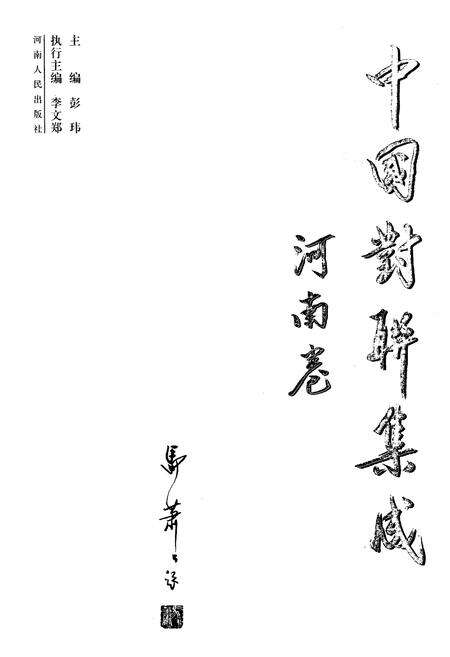 中國對聯集成
河南卷
馬蕭蕭
主编 彭玮
执行主编 李文郑
河南人民出版社